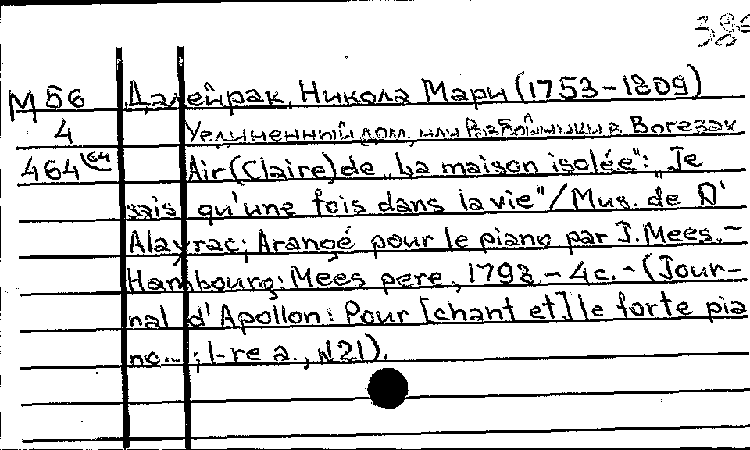 38
М 56 Далейрак, Никола Мари (1753-1809)
4 Уединенный дом, или Разбойники в Вогезах
464 64 Air (Claire) de „La maison isolée": „Je
sais qu'une fois dans la vie"/Mus. de D'
Alayrac; Arangé pour le piano par J. Mees.-
Hambourg: Mees pere, 1798.-4c.-(Jour-
nal d'Apollon: Pour [chant et] le forte pia
no...; 1-re a., N21).